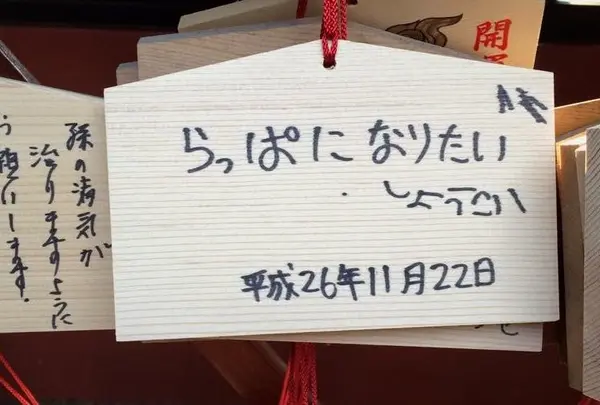 らっぱに なりたい
しょうこ
平成26年11月22日
孫の病気が
治りますように
お願いします。
開運